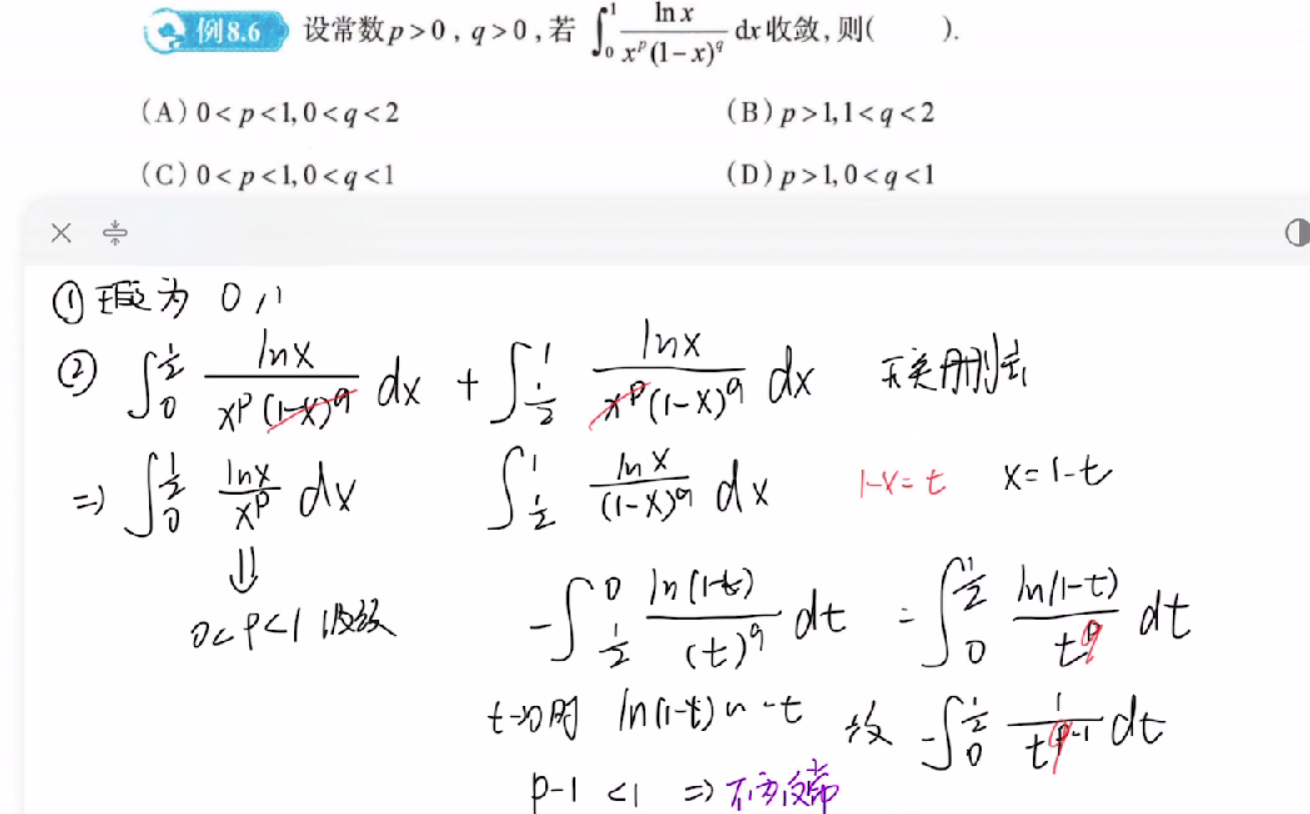 例8.6 设常数p>0,q>0,若∫₀¹ ln x / (xᵖ(1-x)^q) dx收敛,则( ).
(A) 0<p<1,0<q<2 (B) p>1,1<q<2
(C) 0<p<1,0<q<1 (D) p>1,0<q<1
① 瑕点为 0,1
② ∫₀^(1/2) lnx / (xᵖ(1-x)^q) dx + ∫_(1/2)^1 lnx / (xᵖ(1-x)^q) dx 无关
=> ∫₀^(1/2) lnx / xᵖ dx ∫_(1/2)^1 lnx / (1-x)^q dx 1-x=t x=1-t
⇓
0<p<1 收敛 -∫_(1/2)^0 ln(1-t) / (t)^q dt = ∫₀^(1/2) ln(1-t) / t^q dt
t→0时 ln(1-t) ~ -t 故 -∫₀^(1/2) 1 / t^(q-1) dt
p-1 <1 =>